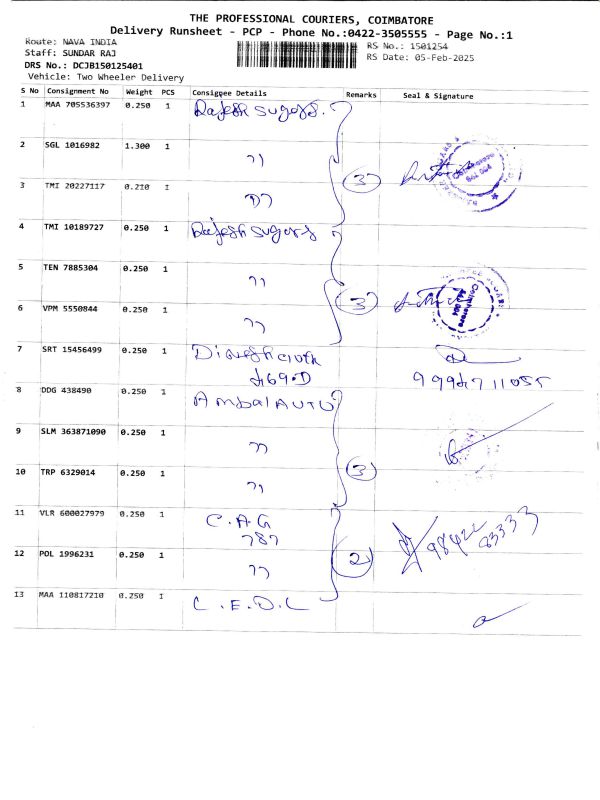 THE PROFESSIONAL COURIERS, COIMBATORE
Delivery Runsheet - PCP - Phone No.:0422-3505555 - Page No.:1
Route: NAVA INDIA
RS No.: 1501254
Staff: SUNDAR RAJ
RS Date: 05-Feb-2025
DRS No.: DCJB150125401
Vehicle: Two Wheeler Delivery
S No Consignment No Weight PCS Consignee Details Remarks Seal & Signature
1 MAA 705536397 0.250 1 Rajesh sugars.
2 SGL 1016982 1.300 1 ,,
3 TMI 20227117 0.210 1 ,, 3
4 TMI 10189727 0.250 1 Rajesh sugars
5 TEN 7885304 0.250 1 ,,
6 VPM 5550844 0.250 1 ,, 3
Coimbatore
641 004
7 SRT 15456499 0.250 1
8 DDG 438490 0.250 1 Ambal AUTO
9 SLM 363871090 0.250 1 ,,
10 TRP 6329014 0.250 1 ,, 3
11 VLR 600027979 0.250 1 C.A.G
787
98422 83333
12 POL 1996231 0.250 1 ,, 2
13 MAA 110817210 0.250 1 C.E.D.L